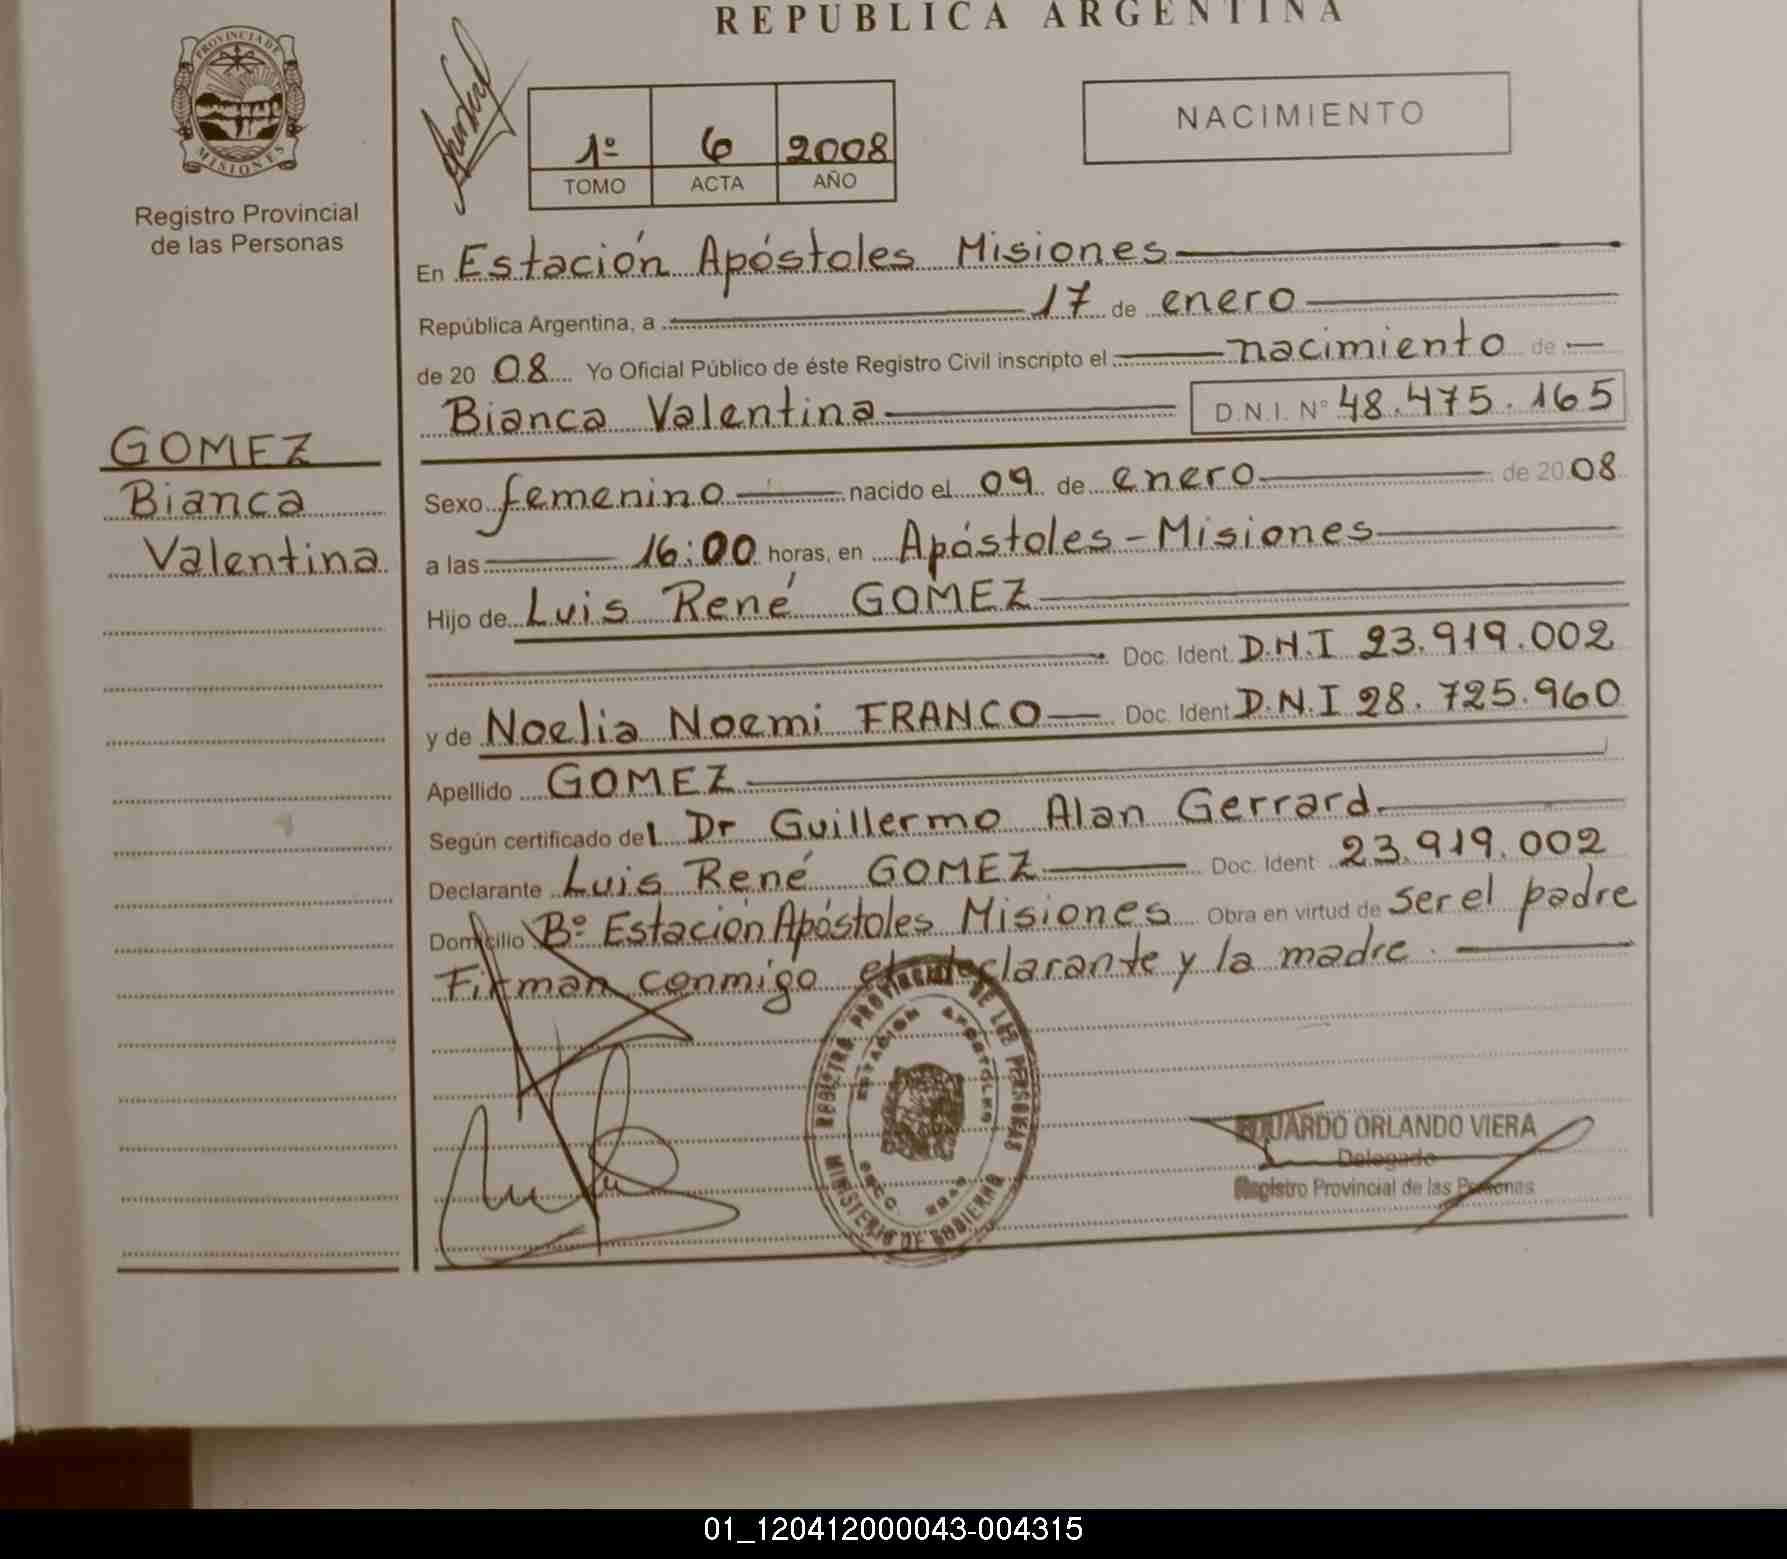 REPUBLICA ARGENTINA
PROVINCIA DE MISIONES
Registro Provincial
de las Personas
1º 6 2008
TOMO ACTA AÑO
NACIMIENTO
En Estación Apóstoles Misiones
República Argentina, a 17 de enero
de 20 08 Yo Oficial Público de éste Registro Civil inscripto el nacimiento de
Bianca Valentina D.N.I. Nº 48.475.165
GOMEZ
Bianca
Valentina
Sexo femenino nacido el 09 de enero de 20 08
a las 16:00 horas, en Apóstoles - Misiones
Hijo de Luis René GOMEZ
Doc. Ident. D.N.I 23.919.002
y de Noelia Noemi FRANCO Doc. Ident D.N.I 28.725.960
Apellido GOMEZ
Según certificado del Dr Guillermo Alan Gerrard.
Declarante Luis René GOMEZ Doc. Ident 23.919.002
Domicilio Bº Estación Apóstoles Misiones Obra en virtud de ser el padre
Firman conmigo el declarante y la madre.
REGISTRO PROVINCIAL DE LAS PERSONAS
ESTACION APOSTOLES
MINISTERIO DE GOBIERNO
EDUARDO ORLANDO VIERA
Delegado
Registro Provincial de las Personas
01_120412000043-004315